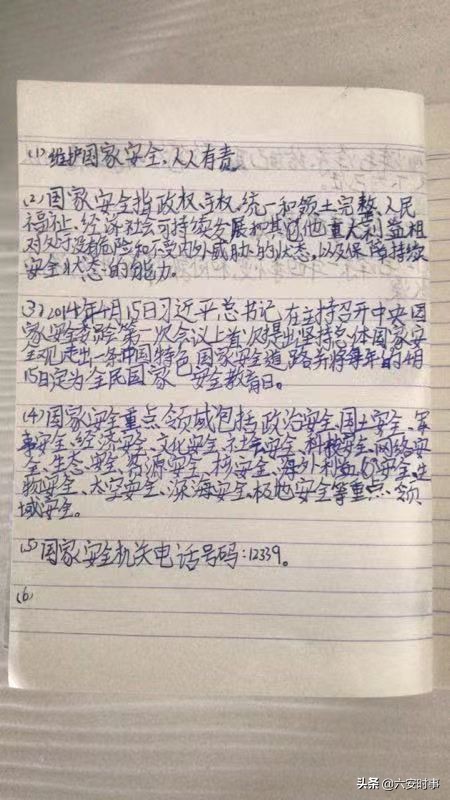 (1) 维护国家安全、人人有责。
(2) 国家安全指政权、主权、统一和领土完整、人民
福祉、经济社会可持续发展和其他重大利益相
对处于没有危险和不受内外威胁的状态,以及保障持续
安全状态的能力。
(3) 2014年4月15日习近平总书记在主持召开中央国
家安全委员会第一次会议上首次提出坚持总体国家安
全观,走出一条中国特色国家安全道路,并将每年的4月
15日定为全民国家安全教育日。
(4) 国家安全重点领域包括政治安全、国土安全、军
事安全、经济安全、文化安全、社会安全、科技安全、网络安
全、生态安全、资源安全、核安全、海外利益安全、生
物安全、太空安全、深海安全、极地安全等重点领
域安全。
(5) 国家安全机关电话号码:12339。
(6)
头条 @六安时事